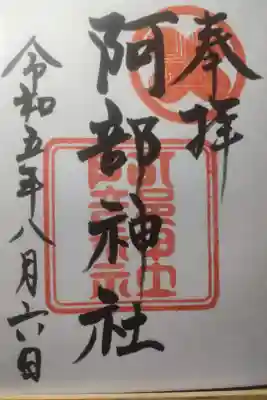 奉拝
阿部神社
阿部神社
令和五年八月六日